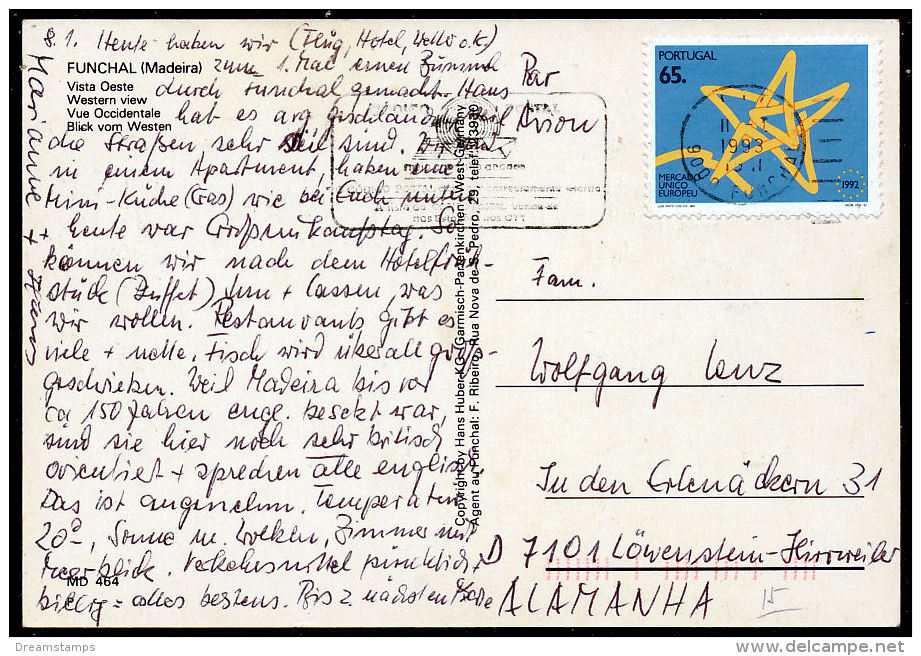 8. 1. Heute haben wir (Flug, Hotel, Wetter o.k.)
FUNCHAL (Madeira)
zum 1. Mal einen Bummel
Vista Oeste
Western view
Vue Occidentale
Blick vom Westen
durch Funchal gemacht. Hans
hat es arg geschlaucht, weil
die Straßen sehr steil sind. Wir
in einem Apartment, haben eine
Mini-Küche (Gas) wie bei Euch unten
+ heute war Großeinkaufstag. So
können wir nach dem Hotelfrüh-
stück (Buffet) tun + lassen, was
wir wollen. Restaurants gibt es
viele + nette. Fisch wird überall groß-
geschrieben. Weil Madeira bis vor
ca 150 Jahren engl. besetzt war,
sind sie hier noch sehr britisch
orientiert + sprechen alle englisch.
Das ist angenehm. Temperatur
20°, Sonne m. Wolken, Zimmer mit
Meerblick. Verkehrsmittel pünktlich +
MD 464
billig = alles bestens. Bis z. nächsten
Marianne + Hans
Copyright by Hans Huber KG, Garmisch-Partenkirchen - West-Germany
Agent au Funchal: F. Ribeiro, Rua Nova de S. Pedro, 29, telef.
Par
Avion
PORTUGAL
65.
MERCADO
ÚNICO
EUROPEU
1992
1993
FUNCHAL
Fam.
Wolfgang Lenz
In den Erlenäckern 31
D 7101 Löwenstein-Hirrweiler
ALAMANHA
15
Dreamstamps
www.delcampe.net